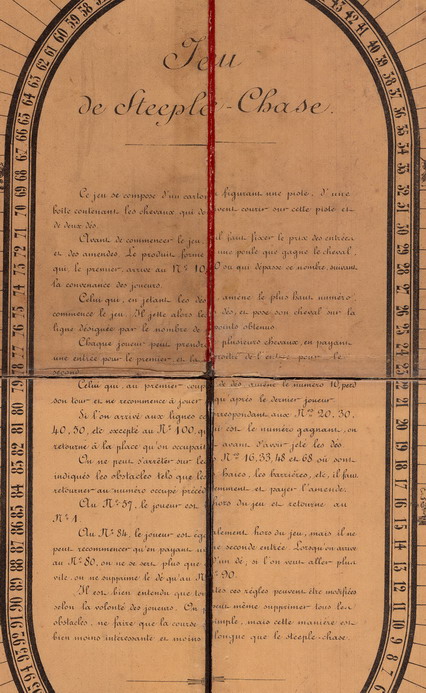 Jeu
de Steeple-Chase.
Ce jeu se compose d'un carton figurant une piste, d'une
boîte contenant les chevaux qui doivent courir sur cette piste et
de deux dés.
Avant de commencer le jeu, il faut fixer le prix des entrées
et des amendes. Le produit forme une poule que gagne le cheval,
qui, le premier, arrive au Nº 100 ou qui dépasse ce nombre, suivant
la convenance des joueurs.
Celui qui, en jetant les dés, amène le plus haut numéro
commence le jeu. Il jette alors les dés, et pose son cheval sur la
ligne désignée par le nombre de points obtenus.
Chaque joueur peut prendre plusieurs chevaux, en payant
une entrée pour le premier et la pour le
second.
Celui qui, au premier coup de dés, amène le numéro 10, perd
son tour et ne recommence à jouer qu'après le dernier joueur.
Si l'on arrive aux lignes correspondant aux Nos 20, 30,
40, 50, etc excepté au Nº 100, qui est le numéro gagnant, on
retourne à la place qu'on occupait avant d'avoir jeté les dés.
On ne peut s'arrêter sur les Nos 16, 33, 48 et 68 où sont
indiqués les obstacles tels que les haies, les barrières, etc, il faut
retourner au numéro occupé précédemment et payer l'amende.
Au Nº 57, le joueur est hors du jeu et retourne au
Nº 1.
Au Nº 84, le joueur est également hors du jeu, mais il ne
peut recommencer qu'en payant une seconde entrée. Lorsqu'on arrive
au Nº 80, on ne se sert plus que d'un dé, si l'on veut aller plus
vite, on ne supprime le dé qu'au Nº 90.
Il est bien entendu que toutes ces règles peuvent être modifiées
selon la volonté des joueurs. On peut même supprimer tous les
obstacles, ne faire que la course simple, mais cette manière est
bien moins intéressante et moins longue que le steeple-chase.